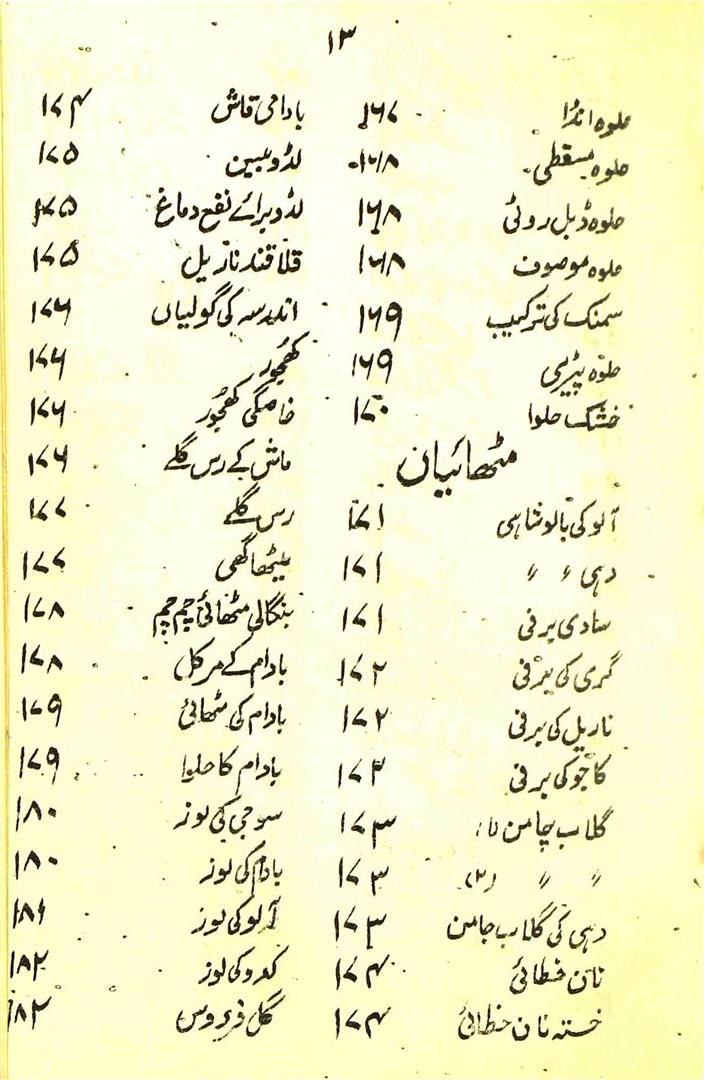 ۱۳
حلوہ انڈا ۱۶۷
حلوہ مسقطی ۱۶۸
حلوہ ڈبل روٹی ۱۶۸
حلوہ موصوف ۱۶۸
سمنک کی ترکیب ۱۶۹
حلوہ پپڑی ۱۶۹
خشک حلوا ۱۷۰
مٹھائیاں
آلو کی بالوشاہی ۱۷۱
دہی " " ۱۷۱
سادی برفی ۱۷۱
گری کی برفی ۱۷۲
ناریل کی برفی ۱۷۲
کاجو کی برفی ۱۷۳
گلاب جامن (۱) ۱۷۳
" " (۲) ۱۷۳
دہی کی گلاب جامن ۱۷۳
نان خطائی ۱۷۴
خستہ نان خطائی ۱۷۴
بادامی قاش ۱۷۴
لڈو بیسن ۱۷۵
لڈو برائے نفع دماغ ۱۷۵
قلاقند ناریل ۱۷۵
اندرسہ کی گولیاں ۱۷۶
کھجور ۱۷۶
خانگی کھجور ۱۷۶
ماش کے رس گلے ۱۷۶
رس گلے ۱۷۷
میٹھا گھی ۱۷۷
بنگالی مٹھائی چم چم ۱۷۸
بادام کے مرکل ۱۷۸
بادام کی مٹھائی ۱۷۹
بادام کا حلوا ۱۷۹
سوجی کی لوز ۱۸۰
بادام کی لوز ۱۸۰
آلو کی لوز ۱۸۱
کدو کی لوز ۱۸۲
گل فردوس ۱۸۲